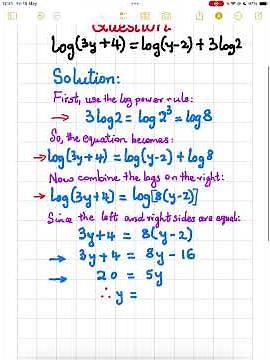 Question:
log(3y+4) = log(y-2) + 3log2
Solution:
First, use the log power rule:
→ 3log2 = log2³ = log8
So, the equation becomes:
→ log(3y+4) = log(y-2) + log8
Now combine the logs on the right:
→ log(3y+4) = log[8(y-2)]
Since the left and right sides are equal:
3y+4 = 8(y-2)
→ 3y+4 = 8y-16
→ 20 = 5y
∴ y =